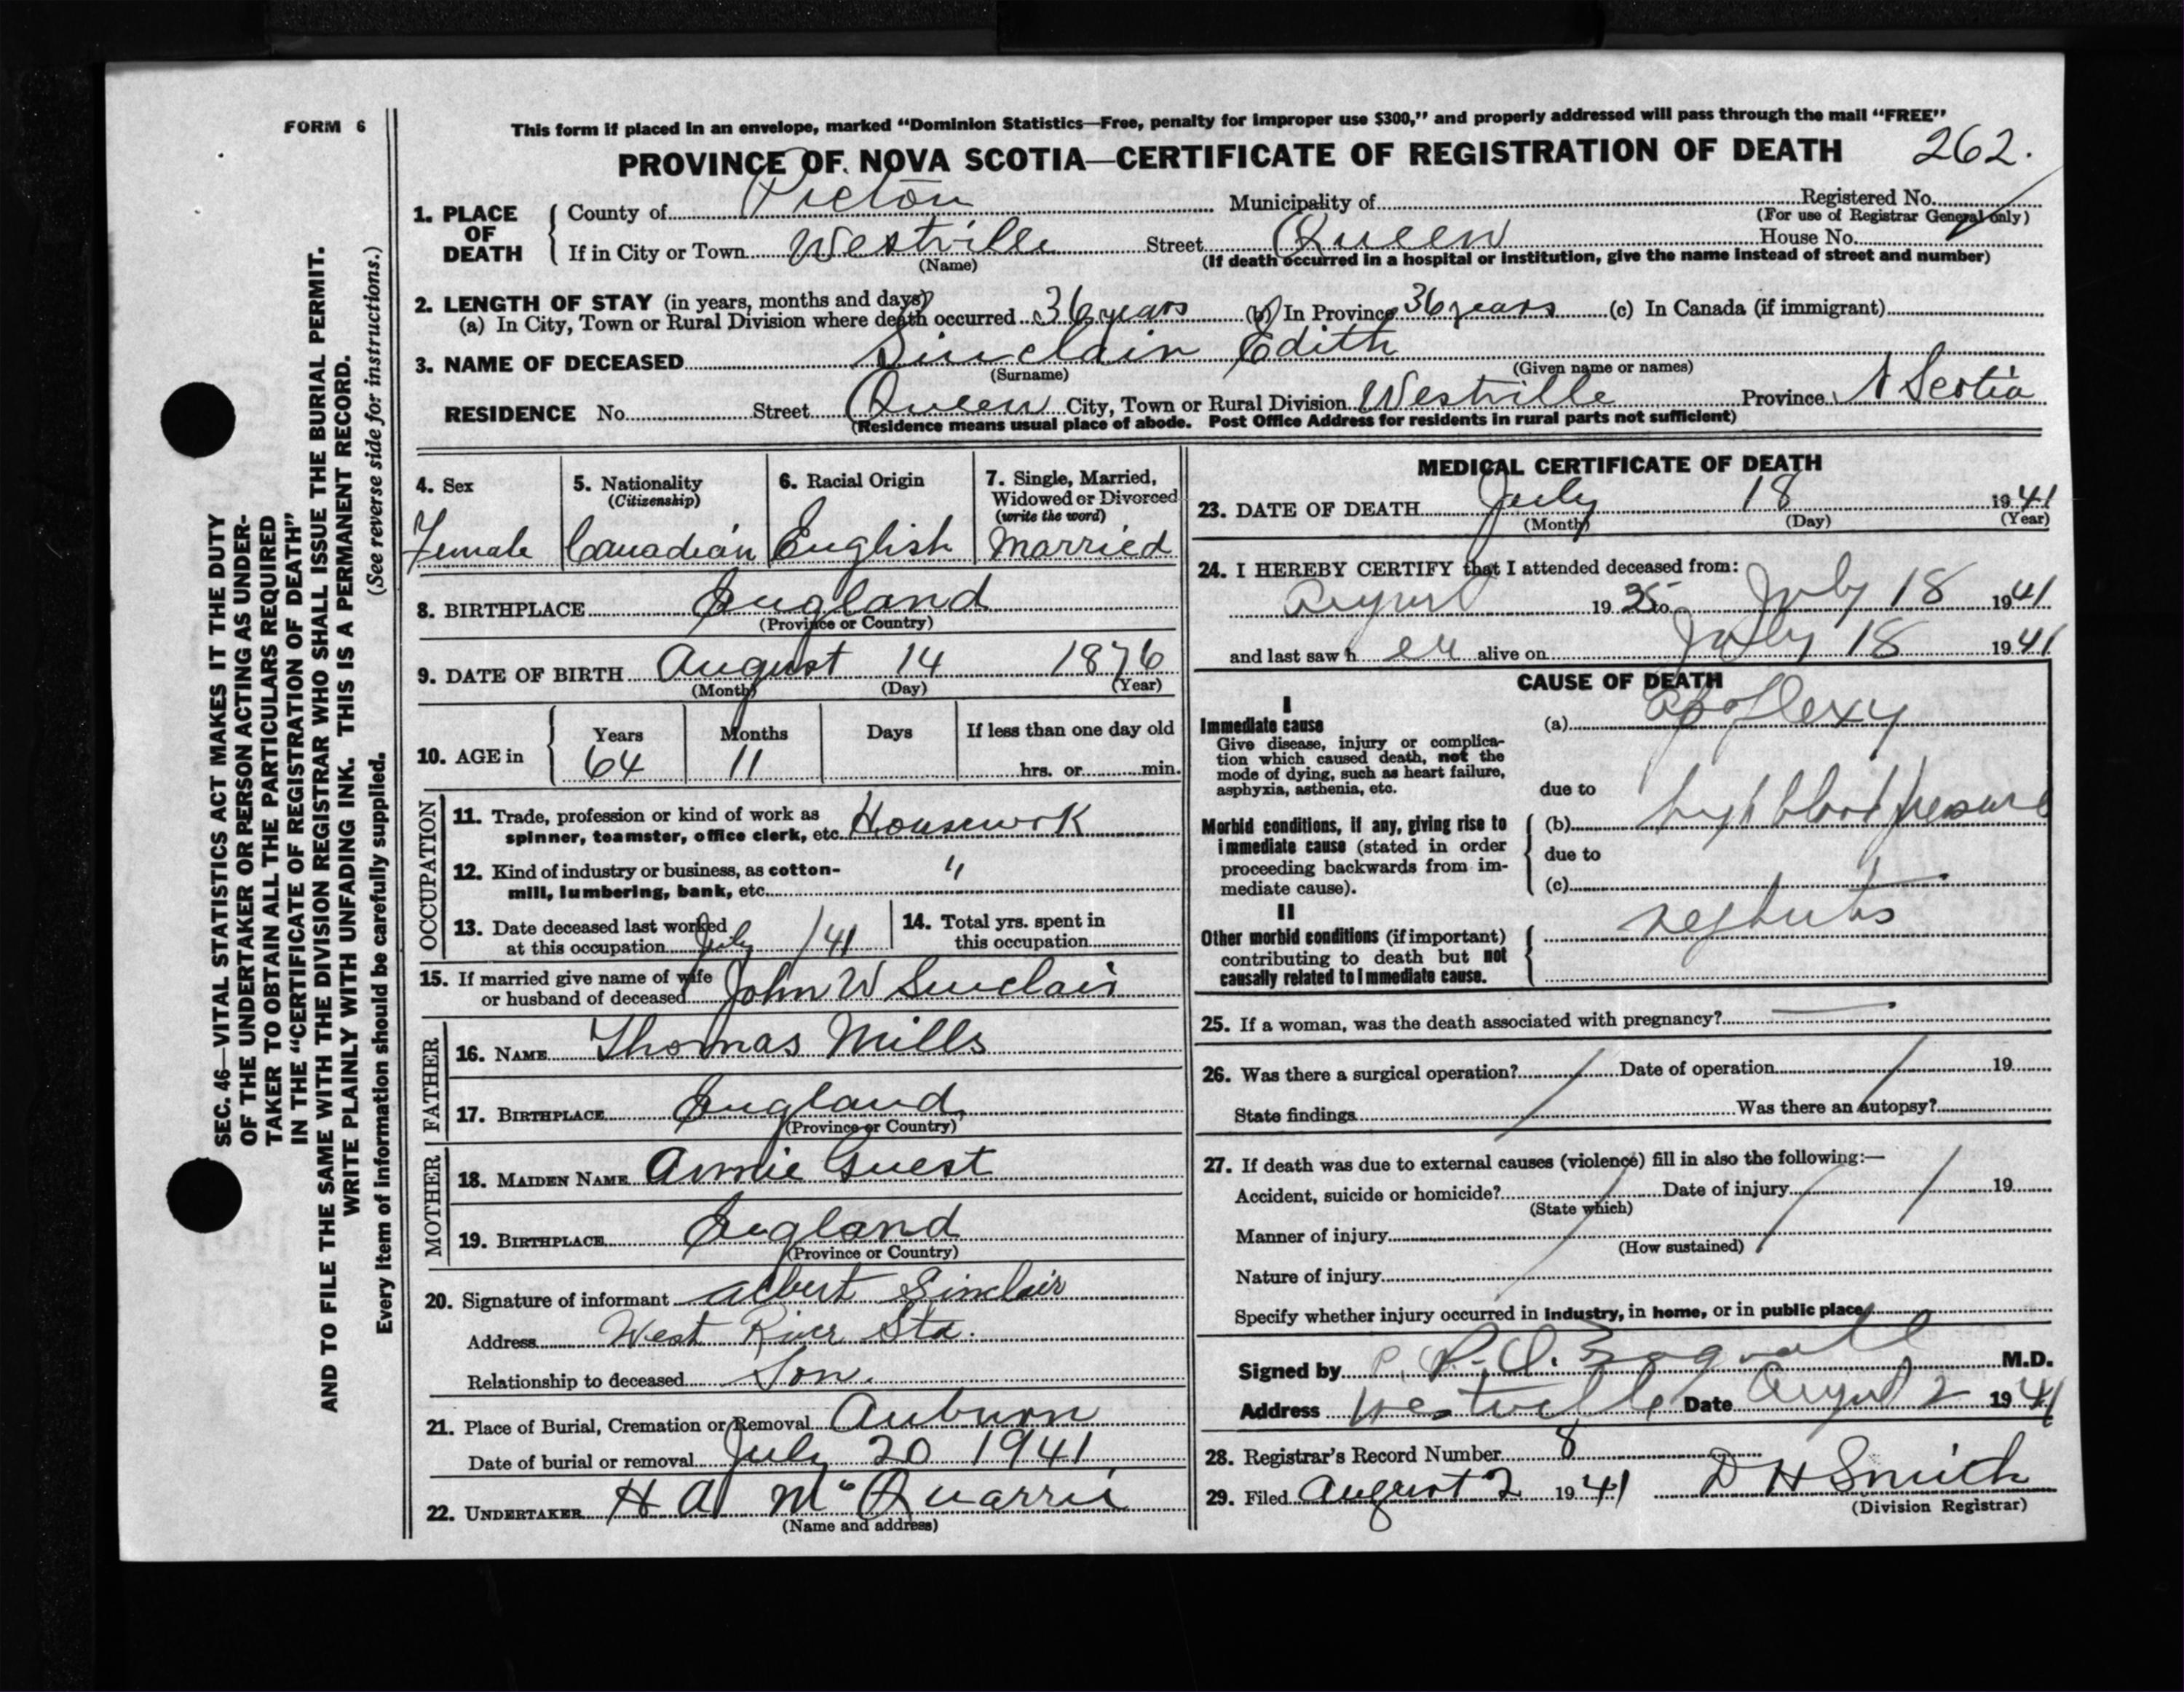 FORM 6
This form if placed in an envelope, marked “Dominion Statistics—Free, penalty for improper use $300,” and properly addressed will pass through the mail “FREE”
PROVINCE OF NOVA SCOTIA—CERTIFICATE OF REGISTRATION OF DEATH 262.
1. PLACE OF DEATH
County of Pictou Municipality of Registered No.
(For use of Registrar General only)
If in City or Town Westville Street Queen House No.
(Name) (If death occurred in a hospital or institution, give the name instead of street and number)
2. LENGTH OF STAY (in years, months and days)
(a) In City, Town or Rural Division where death occurred 36 years (b) In Province 36 years (c) In Canada (if immigrant)
3. NAME OF DECEASED Sinclair Edith
(Surname) (Given name or names)
RESIDENCE No. Street Queen City, Town or Rural Division Westville Province N Scotia
(Residence means usual place of abode. Post Office Address for residents in rural parts not sufficient)
SEC. 46—VITAL STATISTICS ACT MAKES IT THE DUTY
OF THE UNDERTAKER OR PERSON ACTING AS UNDER-
TAKER TO OBTAIN ALL THE PARTICULARS REQUIRED
IN THE “CERTIFICATE OF REGISTRATION OF DEATH”
AND TO FILE THE SAME WITH THE DIVISION REGISTRAR WHO SHALL ISSUE THE BURIAL PERMIT.
WRITE PLAINLY WITH UNFADING INK. THIS IS A PERMANENT RECORD.
(See reverse side for instructions.)
Every item of information should be carefully supplied.
4. Sex
Female
5. Nationality
(Citizenship)
Canadian
6. Racial Origin
English
7. Single, Married,
Widowed or Divorced
(write the word)
Married
8. BIRTHPLACE England
(Province or Country)
9. DATE OF BIRTH August 14 1876
(Month) (Day) (Year)
10. AGE in
Years Months Days If less than one day old
64 11 hrs. or min.
OCCUPATION
11. Trade, profession or kind of work as
spinner, teamster, office clerk, etc. Housework
12. Kind of industry or business, as cotton-
mill, lumbering, bank, etc. "
13. Date deceased last worked
at this occupation July /41
14. Total yrs. spent in
this occupation
15. If married give name of wife
or husband of deceased John W Sinclair
FATHER
16. NAME Thomas Mills
17. BIRTHPLACE England
(Province or Country)
MOTHER
18. MAIDEN NAME Annie Guest
19. BIRTHPLACE England
(Province or Country)
20. Signature of informant Albert Sinclair
Address West River Sta.
Relationship to deceased Son.
21. Place of Burial, Cremation or Removal Auburn
Date of burial or removal July 20 1941
22. UNDERTAKER H A McQuarrie
(Name and address)
MEDICAL CERTIFICATE OF DEATH
23. DATE OF DEATH July 18 1941
(Month) (Day) (Year)
24. I HEREBY CERTIFY that I attended deceased from:
August 1935 to July 18 1941
and last saw h er alive on July 18 1941
CAUSE OF DEATH
I
Immediate cause
Give disease, injury or complica-
tion which caused death, not the
mode of dying, such as heart failure,
asphyxia, asthenia, etc.
(a) Apoplexy
due to
Morbid conditions, if any, giving rise to
immediate cause (stated in order
proceeding backwards from im-
mediate cause).
(b) high blood pressure
due to
(c)
II
Other morbid conditions (if important)
contributing to death but not
causally related to immediate cause.
nephritis
25. If a woman, was the death associated with pregnancy? —
26. Was there a surgical operation? / Date of operation / 19
State findings Was there an autopsy?
27. If death was due to external causes (violence) fill in also the following:—
Accident, suicide or homicide? Date of injury 19
(State which)
Manner of injury
(How sustained)
Nature of injury
Specify whether injury occurred in industry, in home, or in public place
Signed by M.D.
Address Westville Date August 2 1941
28. Registrar's Record Number 8
29. Filed August 2 1941 D H Smith
(Division Registrar)